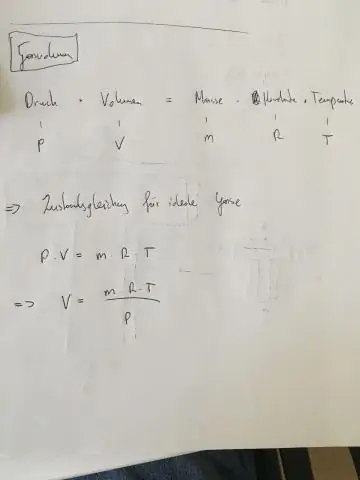 Gasvolumen
Druck · Volumen = Masse · Konstante · Temperatur
P V m R T
=> Zustandsgleichung für ideale Gase
P · V = m · R · T
=> V = m · R · T
P